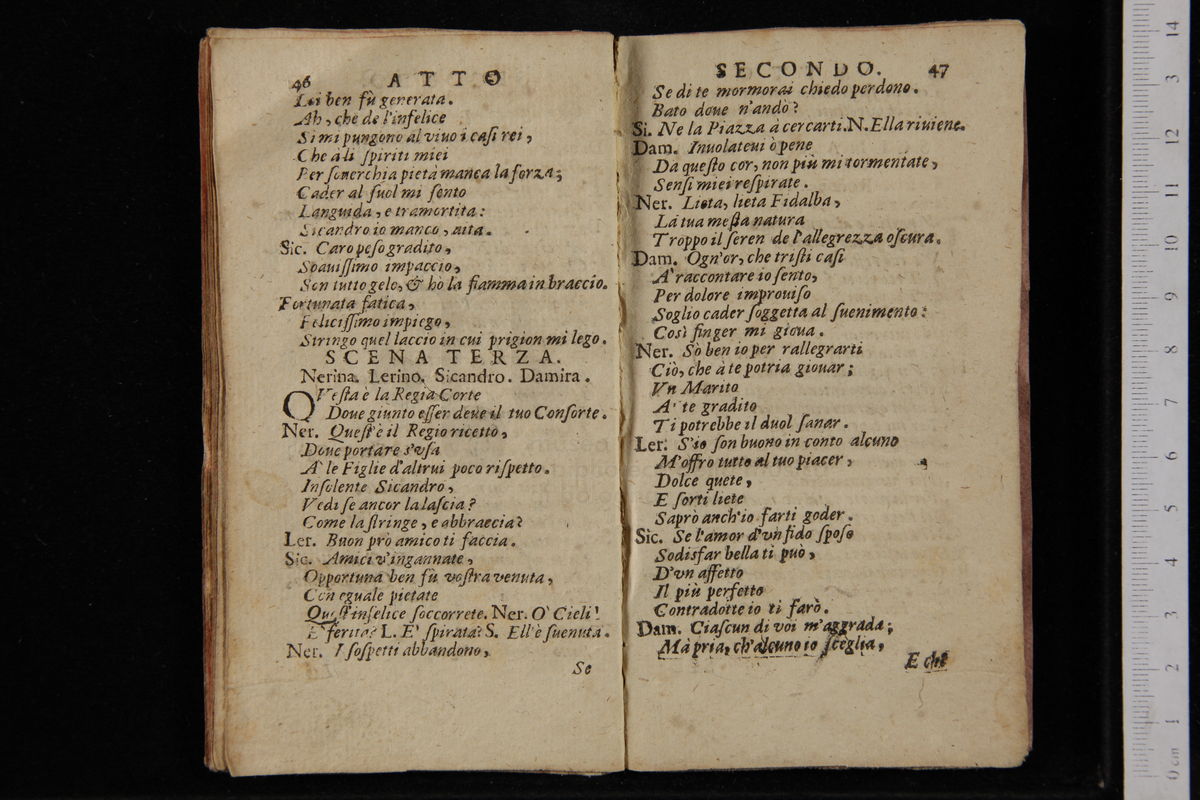 46 ATTO
Lei ben fù generata.
Ah, che de l'infelice
Si mi pungono al viuo i casi rei,
Che à li spiriti miei
Per souerchia pietà manca la forza;
Cader al suol mi sento
Languida, e tramortita:
Sicandro io manco, aita.
Sic. Caro peso gradito,
Soauissimo impaccio,
Son tutto gelo, & hò la fiamma in braccio.
Fortunata fatica,
Felicissimo impiego,
Stringo quel laccio in cui prigion mi lego.
SCENA TERZA.
Nerina. Lerino. Sicandro. Damira.
QVesta è la Regia Corte
Doue giunto esser deue il tuo Consorte.
Ner. Quest'è il Regio ricetto,
Doue portare s'vsa
A' le Figlie d'altrui poco rispetto.
Insolente Sicandro,
Vedi se ancor la lascia?
Come la stringe, e abbraccia?
Ler. Buon prò amico ti faccia.
Sic. Amici v'ingannate,
Opportuna ben fù vostra venuta,
Con eguale pietate
Quest'infelice soccorrete. Ner. O' Cieli!
E' ferita? L. E' spirata? S. Ell'è suenuta.
Ner. I sospetti abbandono,
Se
SECONDO. 47
Se di te mormorai chiedo perdono.
Bato doue n'andò?
Si. Ne la Piazza à cercarti. N. Ella riuiene.
Dam. Inuolateui ò pene
Da questo cor, non più mi tormentate,
Sensi miei respirate.
Ner. Lieta, lieta Fidalba,
La tua mesta natura
Troppo il seren de l'allegrezza oscura.
Dam. Ogn'or, che tristi casi
A' raccontare io sento,
Per dolore improuiso
Soglio cader soggetta al suenimento:
Così finger mi gioua.
Ner. Sò ben io per rallegrarti
Ciò, che à te potria giouar;
Vn Marito
A' te gradito
Ti potrebbe il duol sanar.
Ler. S'io son buono in conto alcuno
M'offro tutto al tuo piacer,
Dolce quete,
E sorti liete
Saprò anch'io farti goder.
Sic. Se l'amor d'vn fido sposo
Sodisfar bella ti può,
D'vn affetto
Il più perfetto
Contradotte io ti farò.
Dam. Ciascun di voi m'aggrada;
Mà pria, ch'alcuno io sceglia,
E che